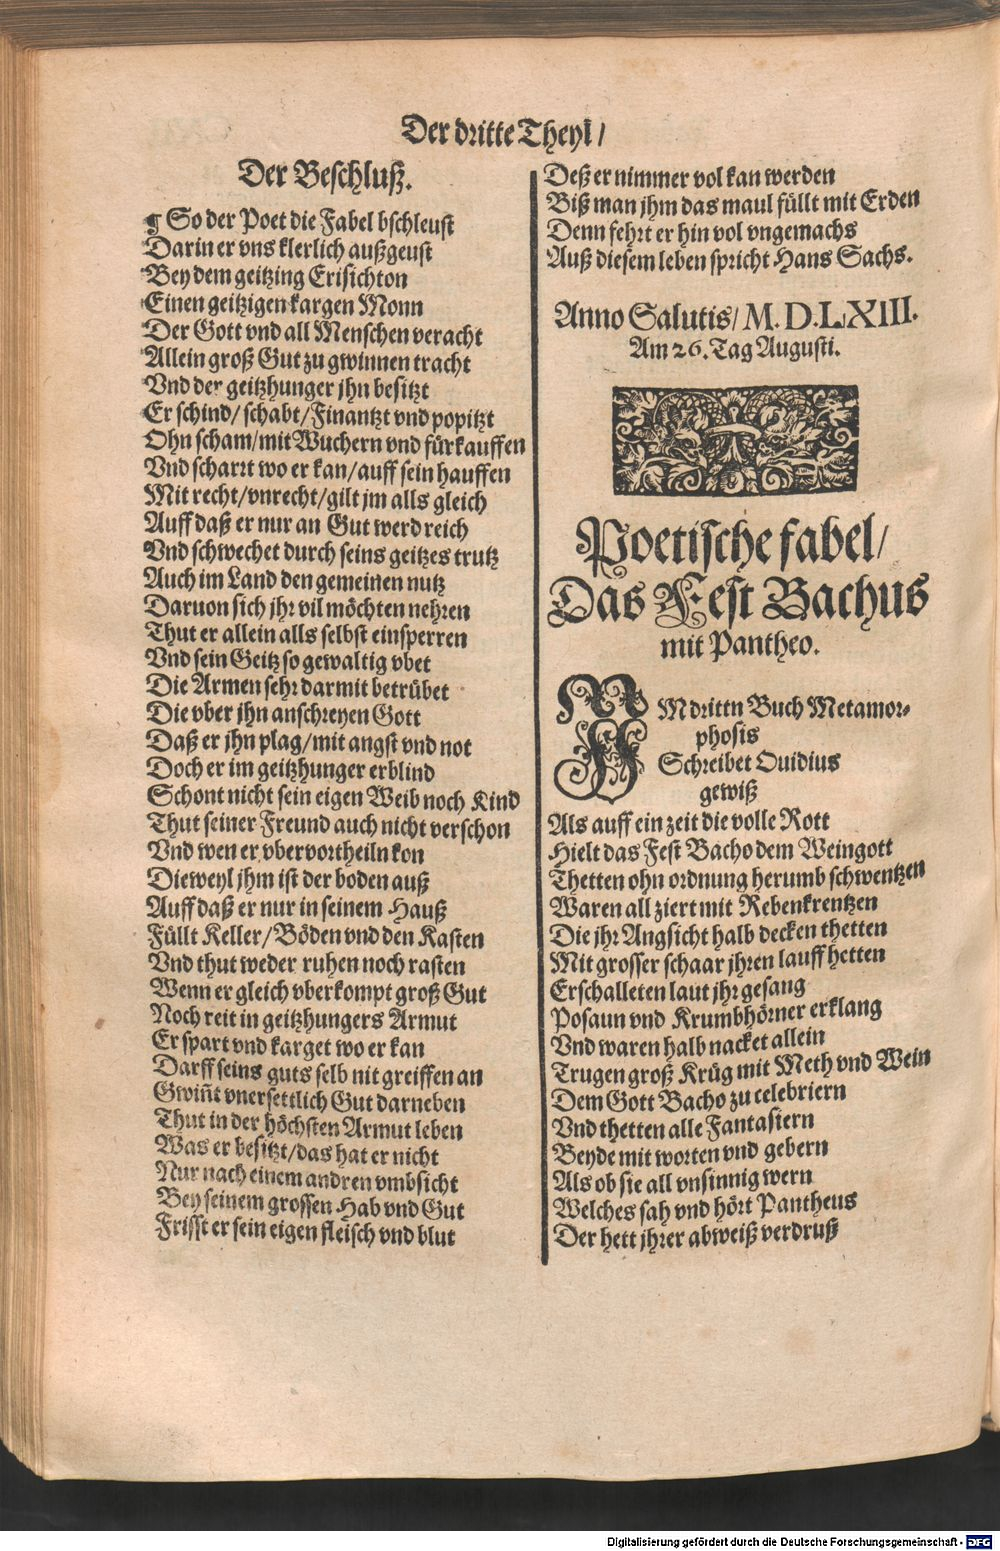 Der dritte Theyl/
Der Beschluß.
¶ So der Poet die Fabel bschleust
Darin er vns klerlich außgeust
Bey dem geitzing Erisichton
Einen geitzigen kargen Monn
Der Gott vnd all Menschen veracht
Allein groß Gut zu gwinnen tracht
Vnd der geitzhunger jhn besitzt
Er schind/ schabt/ Finantzt vnd popitzt
Ohn scham/ mit Wuchern vnd fürkauffen
Vnd scharrt wo er kan/ auff sein hauffen
Mit recht/ vnrecht/ gilt jm alls gleich
Auff daß er nur an Gut werd reich
Vnd schwechet durch seins geitzes trutz
Auch im Land den gemeinen nutz
Daruon sich jhr vil möchten nehren
Thut er allein alls selbst einsperren
Vnd sein Geitz so gewaltig vbet
Die Armen sehr darmit betrübet
Die vber jhn anschreyen Gott
Daß er jhn plag/ mit angst vnd not
Doch er im geitzhunger erblind
Schont nicht sein eigen Weib noch Kind
Thut seiner Freund auch nicht verschon
Vnd wen er vbervortheiln kon
Dieweyl jhm ist der boden auß
Auff daß er nur in seinem Hauß
Füllt Keller/ Böden vnd den Kasten
Vnd thut weder ruhen noch rasten
Wenn er gleich vberkompt groß Gut
Noch reit in geitzhungers Armut
Er spart vnd karget wo er kan
Darff seins guts selb nit greiffen an
Gwiñt vnersettlich Gut darneben
Thut in der höchsten Armut leben
Was er besitzt/ das hat er nicht
Nur nach einem andren vmbsicht
Bey seinem grossen Hab vnd Gut
Frisst er sein eigen fleisch vnd blut
Deß er nimmer vol kan werden
Biß man jhm das maul füllt mit Erden
Denn fehrt er hin vol vngemachs
Auß diesem leben spricht Hans Sachs.
Anno Salutis/ M. D. LXIII.
Am 26. Tag Augusti.
Poetische fabel/
Das Fest Bachus
mit Pantheo.
IM drittn Buch Metamor⸗
phosis
Schreibet Ouidius
gewiß
Als auff ein zeit die volle Rott
Hielt das Fest Bacho dem Weingott
Thetten ohn ordnung herumb schwentzen
Waren all ziert mit Rebenkrentzen
Die jhr Angsicht halb decken thetten
Mit grosser schaar jhren lauff hetten
Erschalleten laut jhr gesang
Posaun vnd Krumbhörner erklang
Vnd waren halb nacket allein
Trugen groß Krüg mit Meth vnd Wein
Dem Gott Bacho zu celebriern
Vnd thetten alle Fantasiern
Beyde mit worten vnd gebern
Als ob sie all vnsinnig wern
Welches sah vnd hört Pantheus
Der hett jhrer abweiß verdruß
Digitalisierung gefördert durch die Deutsche Forschungsgemeinschaft - DFG